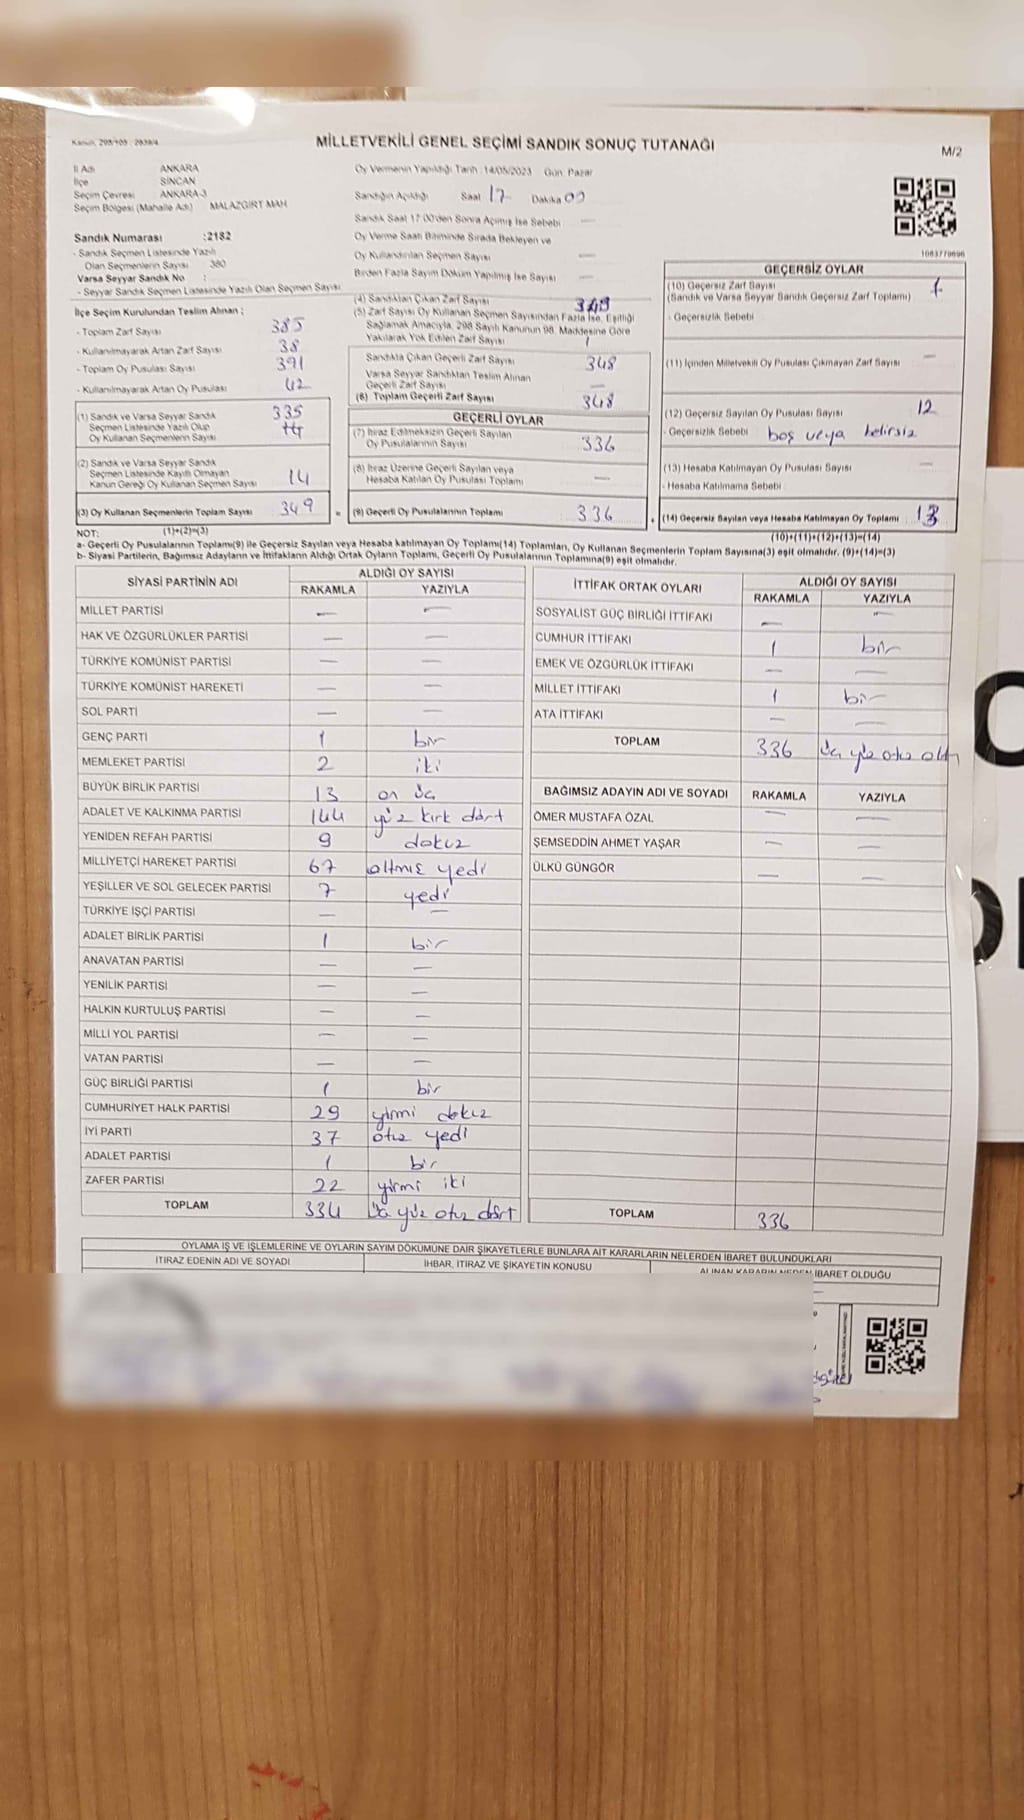 Kanun, 298/105 : 2839/4
MİLLETVEKİLİ GENEL SEÇİMİ SANDIK SONUÇ TUTANAĞI
M/2
İl Adı ANKARA
İlçe SİNCAN
Seçim Çevresi ANKARA-3
Seçim Bölgesi (Mahalle Adı) MALAZGİRT MAH
Sandık Numarası :2182
- Sandık Seçmen Listesinde Yazılı
Olan Seçmenlerin Sayısı 380
Varsa Seyyar Sandık No :
- Seyyar Sandık Seçmen Listesinde Yazılı Olan Seçmen Sayısı
Oy Vermenin Yapıldığı Tarih :14/05/2023 Gün: Pazar
Sandığın Açıldığı Saat 17 Dakika 00
Sandık Saat 17:00'den Sonra Açılmış İse Sebebi —
Oy Verme Saati Bitiminde Sırada Bekleyen ve
Oy Kullandırılan Seçmen Sayısı —
Birden Fazla Sayım Döküm Yapılmış İse Sayısı —
İlçe Seçim Kurulundan Teslim Alınan :
- Toplam Zarf Sayısı 385
- Kullanılmayarak Artan Zarf Sayısı 38
- Toplam Oy Pusulası Sayısı 391
- Kullanılmayarak Artan Oy Pusulası 42
(1) Sandık ve Varsa Seyyar Sandık 335
Seçmen Listesinde Yazılı Olup
Oy Kullanan Seçmenlerin Sayısı
(2) Sandık ve Varsa Seyyar Sandık
Seçmen Listesinde Kayıtlı Olmayan
Kanun Gereği Oy Kullanan Seçmen Sayısı 14
(3) Oy Kullanan Seçmenlerin Toplam Sayısı 349 =
(4) Sandıktan Çıkan Zarf Sayısı 349
(5) Zarf Sayısı Oy Kullanan Seçmen Sayısından Fazla İse, Eşitliği
Sağlamak Amacıyla, 298 Sayılı Kanunun 98. Maddesine Göre
Yakılarak Yok Edilen Zarf Sayısı
Sandıkta Çıkan Geçerli Zarf Sayısı 348
Varsa Seyyar Sandıktan Teslim Alınan
Geçerli Zarf Sayısı —
(6) Toplam Geçerli Zarf Sayısı 348
GEÇERLİ OYLAR
(7) İtiraz Edilmeksizin Geçerli Sayılan
Oy Pusulalarının Sayısı 336
(8) İtiraz Üzerine Geçerli Sayılan veya
Hesaba Katılan Oy Pusulası Toplamı —
(9) Geçerli Oy Pusulalarının Toplamı 336 +
1083770696
GEÇERSİZ OYLAR
(10) Geçersiz Zarf Sayısı 1
(Sandık ve Varsa Seyyar Sandık Geçersiz Zarf Toplamı)
- Geçersizlik Sebebi
(11) İçinden Milletvekili Oy Pusulası Çıkmayan Zarf Sayısı —
(12) Geçersiz Sayılan Oy Pusulası Sayısı 12
- Geçersizlik Sebebi boş veya belirsiz
(13) Hesaba Katılmayan Oy Pusulası Sayısı —
- Hesaba Katılmama Sebebi
(14) Geçersiz Sayılan veya Hesaba Katılmayan Oy Toplamı 13
NOT: (1)+(2)=(3) (10)+(11)+(12)+(13)=(14)
a- Geçerli Oy Pusulalarının Toplamı(9) ile Geçersiz Sayılan veya Hesaba katılmayan Oy Toplamı(14) Toplamları, Oy Kullanan Seçmenlerin Toplam Sayısına(3) eşit olmalıdır. (9)+(14)=(3)
b- Siyasi Partilerin, Bağımsız Adayların ve İttifakların Aldığı Ortak Oyların Toplamı, Geçerli Oy Pusulalarının Toplamına(9) eşit olmalıdır.
SİYASİ PARTİNİN ADI ALDIĞI OY SAYISI
RAKAMLA YAZIYLA
MİLLET PARTİSİ — —
HAK VE ÖZGÜRLÜKLER PARTİSİ — —
TÜRKİYE KOMÜNİST PARTİSİ — —
TÜRKİYE KOMÜNİST HAREKETİ — —
SOL PARTİ — —
GENÇ PARTİ 1 bir
MEMLEKET PARTİSİ 2 iki
BÜYÜK BİRLİK PARTİSİ 13 on üç
ADALET VE KALKINMA PARTİSİ 144 yüz kırk dört
YENİDEN REFAH PARTİSİ 9 dokuz
MİLLİYETÇİ HAREKET PARTİSİ 67 altmış yedi
YEŞİLLER VE SOL GELECEK PARTİSİ 7 yedi
TÜRKİYE İŞÇİ PARTİSİ — —
ADALET BİRLİK PARTİSİ 1 bir
ANAVATAN PARTİSİ — —
YENİLİK PARTİSİ — —
HALKIN KURTULUŞ PARTİSİ — —
MİLLİ YOL PARTİSİ — —
VATAN PARTİSİ — —
GÜÇ BİRLİĞİ PARTİSİ 1 bir
CUMHURİYET HALK PARTİSİ 29 yirmi dokuz
İYİ PARTİ 37 otuz yedi
ADALET PARTİSİ 1 bir
ZAFER PARTİSİ 22 yirmi iki
TOPLAM 334 üç yüz otuz dört
İTTİFAK ORTAK OYLARI ALDIĞI OY SAYISI
RAKAMLA YAZIYLA
SOSYALİST GÜÇ BİRLİĞİ İTTİFAKI — —
CUMHUR İTTİFAKI 1 bir
EMEK VE ÖZGÜRLÜK İTTİFAKI — —
MİLLET İTTİFAKI 1 bir
ATA İTTİFAKI — —
TOPLAM 336 üç yüz otuz altı
BAĞIMSIZ ADAYIN ADI VE SOYADI RAKAMLA YAZIYLA
ÖMER MUSTAFA ÖZAL — —
ŞEMSEDDİN AHMET YAŞAR — —
ÜLKÜ GÜNGÖR — —
TOPLAM 336
OYLAMA İŞ VE İŞLEMLERİNE VE OYLARIN SAYIM DÖKÜMÜNE DAİR ŞİKAYETLERLE BUNLARA AİT KARARLARIN NELERDEN İBARET BULUNDUKLARI
İTİRAZ EDENİN ADI VE SOYADI İHBAR, İTİRAZ VE ŞİKAYETİN KONUSU ALINAN KARARIN NEDEN İBARET OLDUĞU